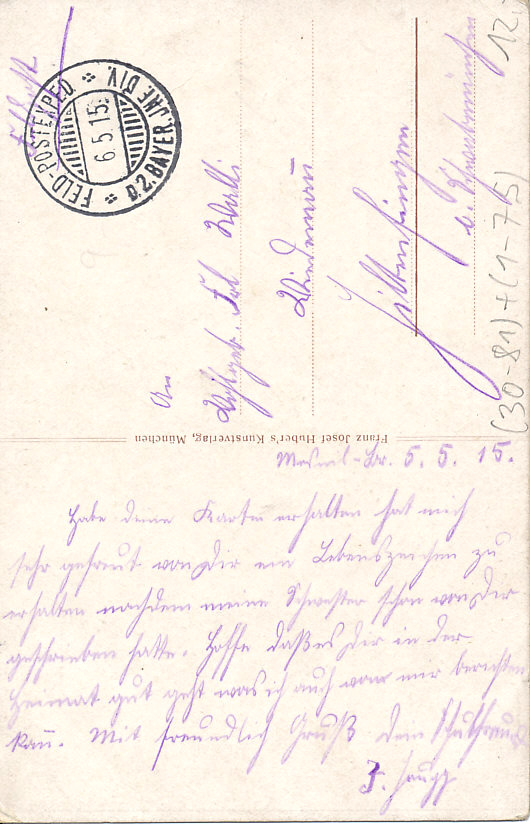 FELD-POSTEXPED
6.5.15.
D.2.BAYER.JNF.DIV.
An
Frl. Walli
Wiedeman
Franz Josef Huber's Kunstverlag, München
5. 5. 15.
Habe deine Karten erhalten hat mich
sehr gefreut von Dir ein Lebenszeichen zu
erhalten nachdem meine Schwester schon von Dir
geschrieben hatte. Hoffe daß es Dir in der
Heimat gut geht was ich auch von mir berichten
kann. Mit freundlich Gruß Dein
(30-81)+(1-75)
12,